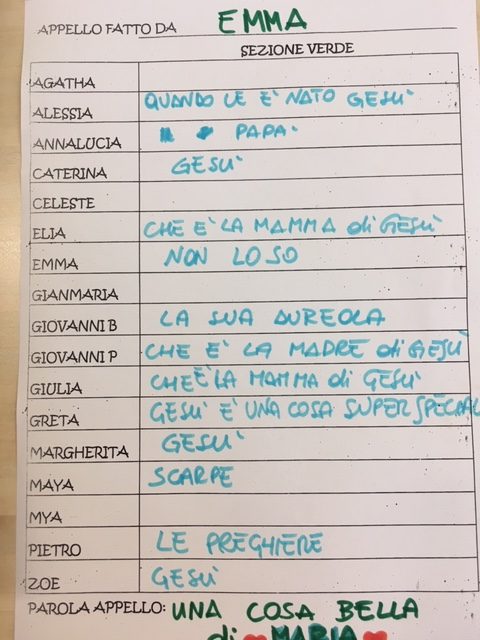 APPELLO FATTO DA EMMA
SEZIONE VERDE
AGATHA
ALESSIA QUANDO LE È NATO GESÙ
ANNALUCIA PAPA.
CATERINA GESÙ
CELESTE
ELIA CHE È LA MAMMA di GESÙ
EMMA NON LO SO
GIANMARIA
GIOVANNI B LA SUA AUREOLA
GIOVANNI P CHE È LA MADRE di GESÙ
GIULIA CHE È LA MAMMA di GESÙ
GRETA GESÙ È UNA COSA SUPER SPECIAL
MARGHERITA GESÙ
MAYA SCARPE
MYA
PIETRO LE PREGHIERE
ZOE GESÙ
PAROLA APPELLO: UNA COSA BELLA
di MARIA